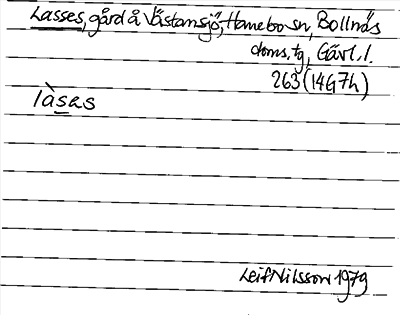 Lasses, gård å Västansjö, Hanebo sn, Bollnäs
doms. tg, Gävl. l.
263 (14G7h)
làsas
Leif Nilsson 1979